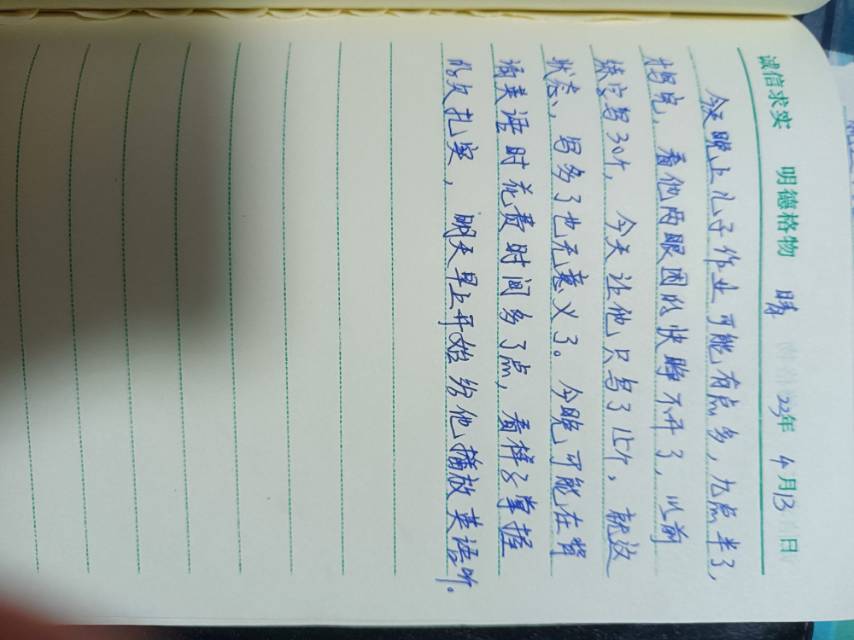 诚信求实 明德格物 晴 23年4月13日
今天晚上儿子作业可能有点多,九点半了,
才写完,看他两眼困的快睁不开了,以前
练字写30个,今天让他只写了15个,就这
状态,写多了也无意义了。今晚可能在背
诵英语时花费时间多了点,看样子掌握
的欠扎实,明天早上开始给他播放英语听。